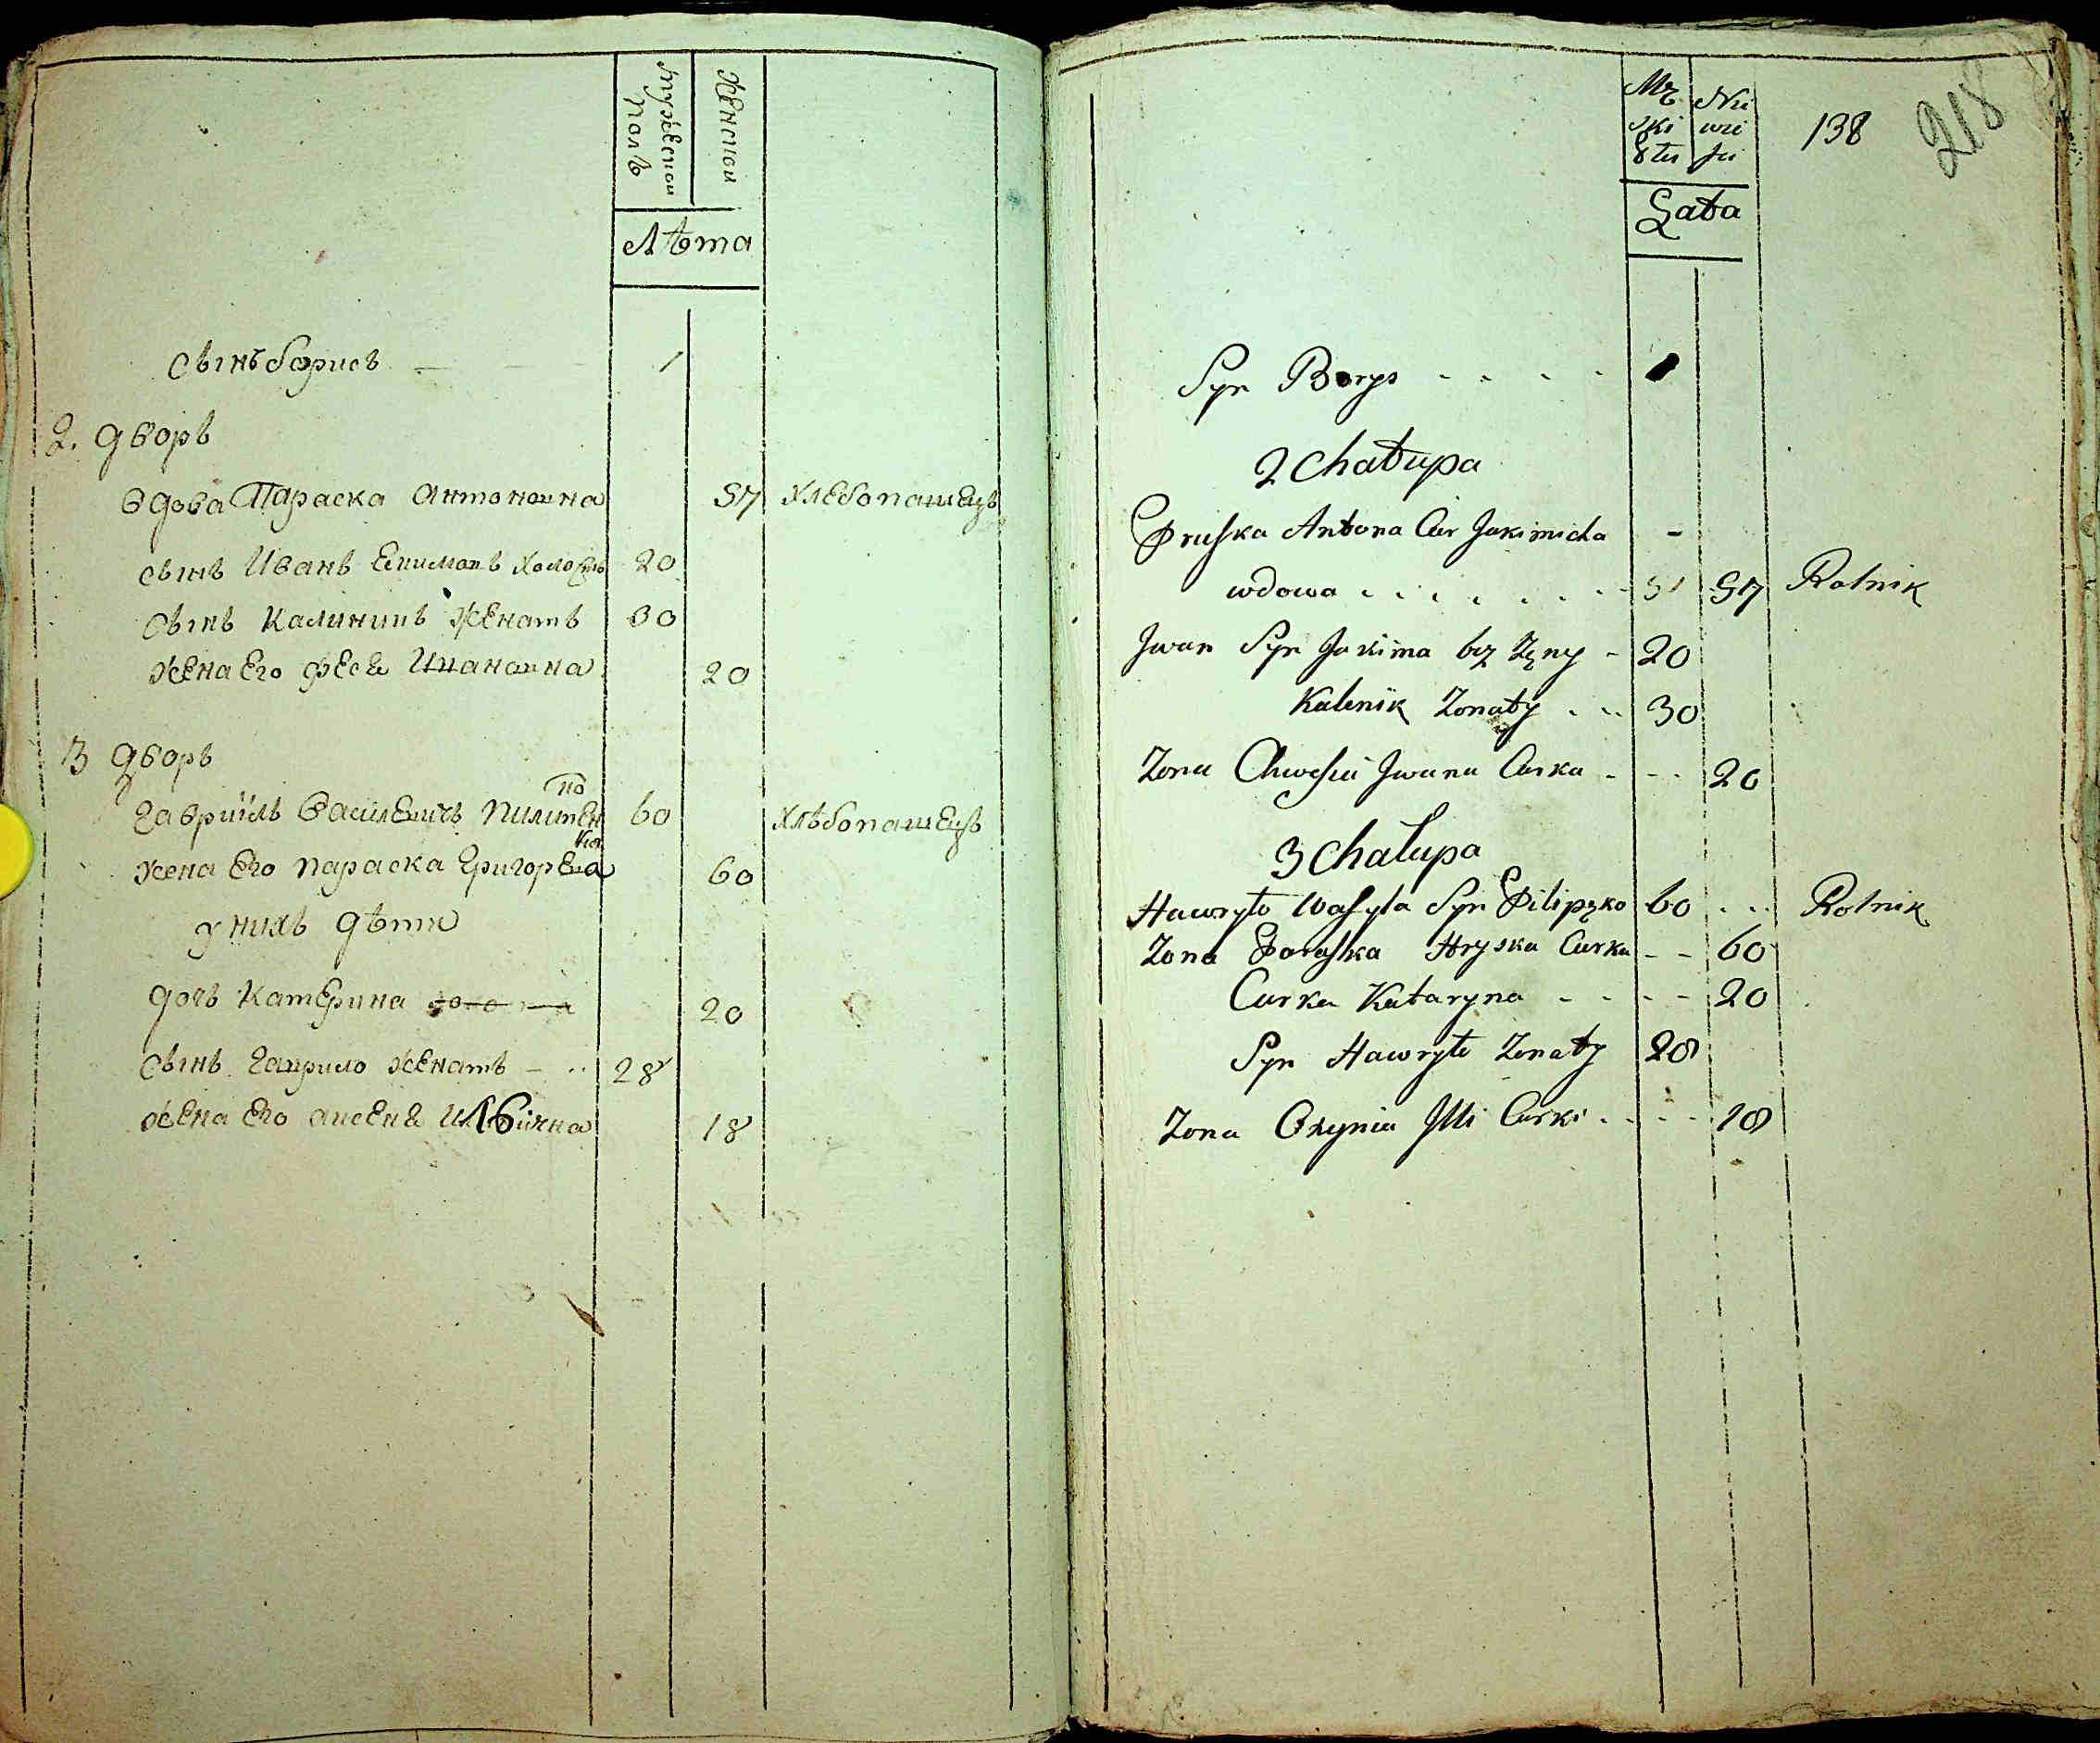 мужескои
полъ
женскои
Лѣта
сынъ борисъ 1
2. дворъ
вдова Параска Антоновна 57 хлебопашецъ
сынъ Иванъ Екимовъ холостъ 20
сынъ калининъ женатъ 30
жена Его феся Ивановна 20
3 дворъ
по
гавриїлъ василевичъ пилипен 60 хлѣбопашецъ
ка
жена Его параска григорева 60
у нихъ дѣти
дочь Катерина 20
сынъ гаврило женатъ 28
жена Его аксеня Илвична 18
138
218
Męz
ski
Nie
wie
Lata
Syn Borys
2 Chałupa
Pruska Antona Cur Jakimicha
wdowa 57 Rolnik
Jwan Syn Jakima bez Zęny 20
Kalenik Zonaty 30
Zona Chwesia Jwana Curka 20
3 Chalupa
Hawryło Wasyla Syn Pilipęko 60 Rolnik
Zona Paraska Hryska Curka 60
Curka Kataryna 20
Syn Hawryło Zonaty 28
Zona Oxynia Jlli Curki 18